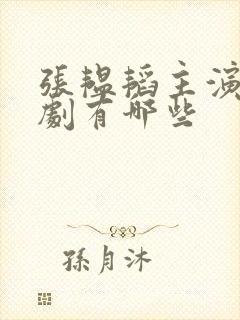 張韞韜主演
劇有哪些
孫月沐